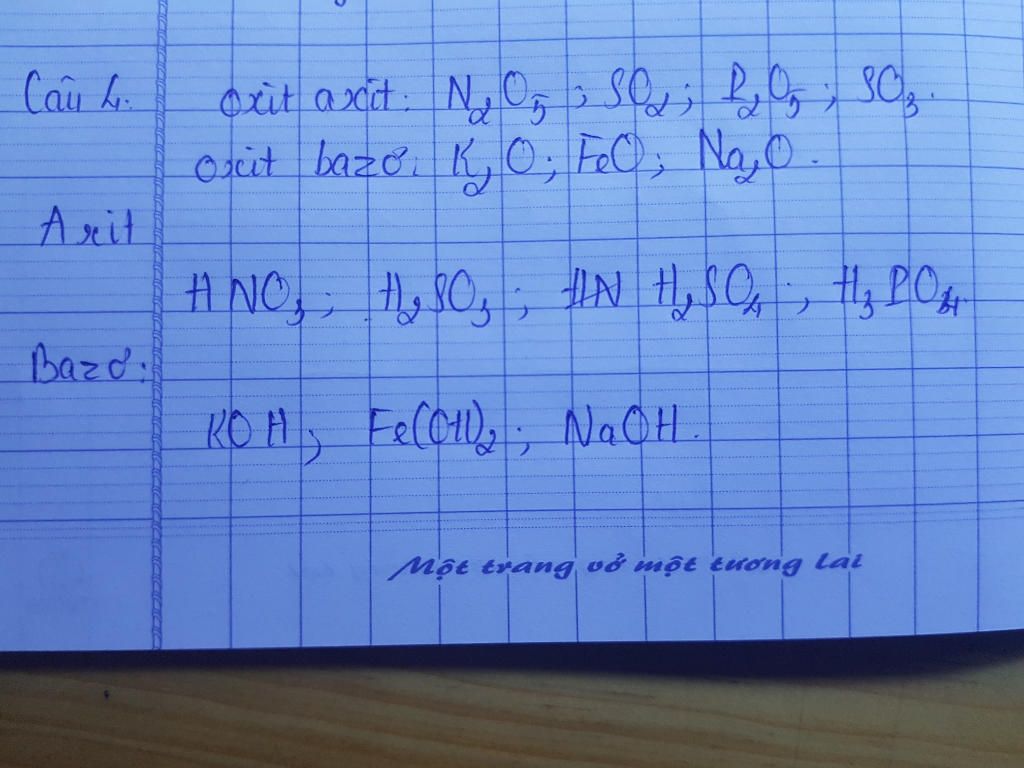 Câu 4: oxit axit: N₂O₅ ; SO₂ ; P₂O₅ ; SO₃.
oxit bazơ: K₂O ; FeO ; Na₂O.
Axit
HNO₃ ; H₂SO₃ ; HN H₂SO₄ ; H₃PO₄.
Bazơ:
KOH ; Fe(OH)₂ ; NaOH.
Một trang vở một tương lai